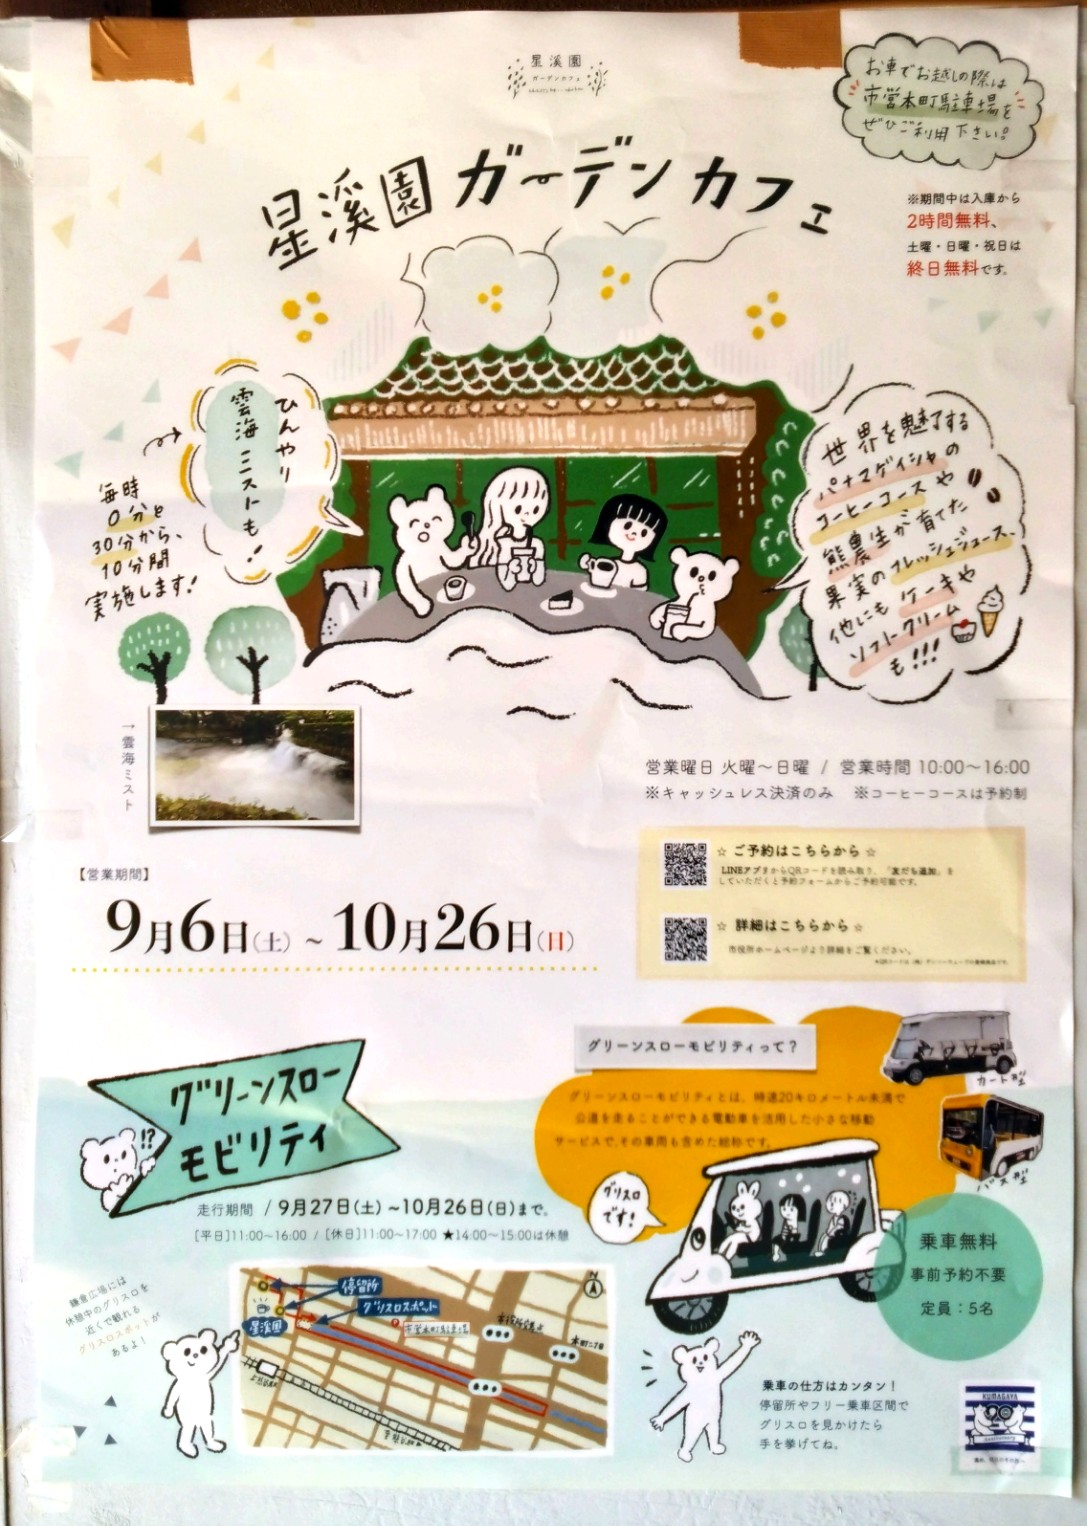 星溪園
ガーデンカフェ
お車でお越しの際は
市営本町駐車場を
ぜひご利用下さい。
※期間中は入庫から
2時間無料、
土曜・日曜・祝日は
終日無料です。
星溪園 ガーデン カフェ
ひんやり
雲海ミストも!
毎時
0分と
30分から、
10分間
実施します!
世界を魅了する
パナマゲイシャの
コーヒーコースや
熊農生が育てた
果実のフレッシュジュース、
他にもケーキや
ソフトクリーム
も!!!
→雲海ミスト
営業曜日 火曜～日曜 / 営業時間 10:00～16:00
※キャッシュレス決済のみ ※コーヒーコースは予約制
【営業期間】
9月6日(土) ~ 10月26日(日)
☆ ご予約はこちらから ☆
LINEアプリからQRコードを読み取り、「友だち追加」を
していただくと予約フォームからご予約可能です。
☆ 詳細はこちらから ☆
市役所ホームページより詳細をご覧ください。
グリーンスロー
モビリティ
!?
走行期間 / 9月27日(土) ~10月26日(日)まで。
[平日]11:00~16:00 / [休日]11:00~17:00 ★14:00~15:00は休憩
グリーンスローモビリティって?
グリーンスローモビリティとは、時速20キロメートル未満で
公道を走ることができる電動車を活用した小さな移動
サービスで、その車両も含めた総称です。
カート型
バス型
グリスロ
です!
乗車無料
事前予約不要
定員：5名
鎌倉広場には
休憩中のグリスロを
近くで観れる
グリスロスポットが
あるよ!
停留所
グリスロスポット
星溪園
市営本町駐車場
N
乗車の仕方はカンタン!
停留所やフリー乗車区間で
グリスロを見かけたら
手を挙げてね。
KUMAGAYA